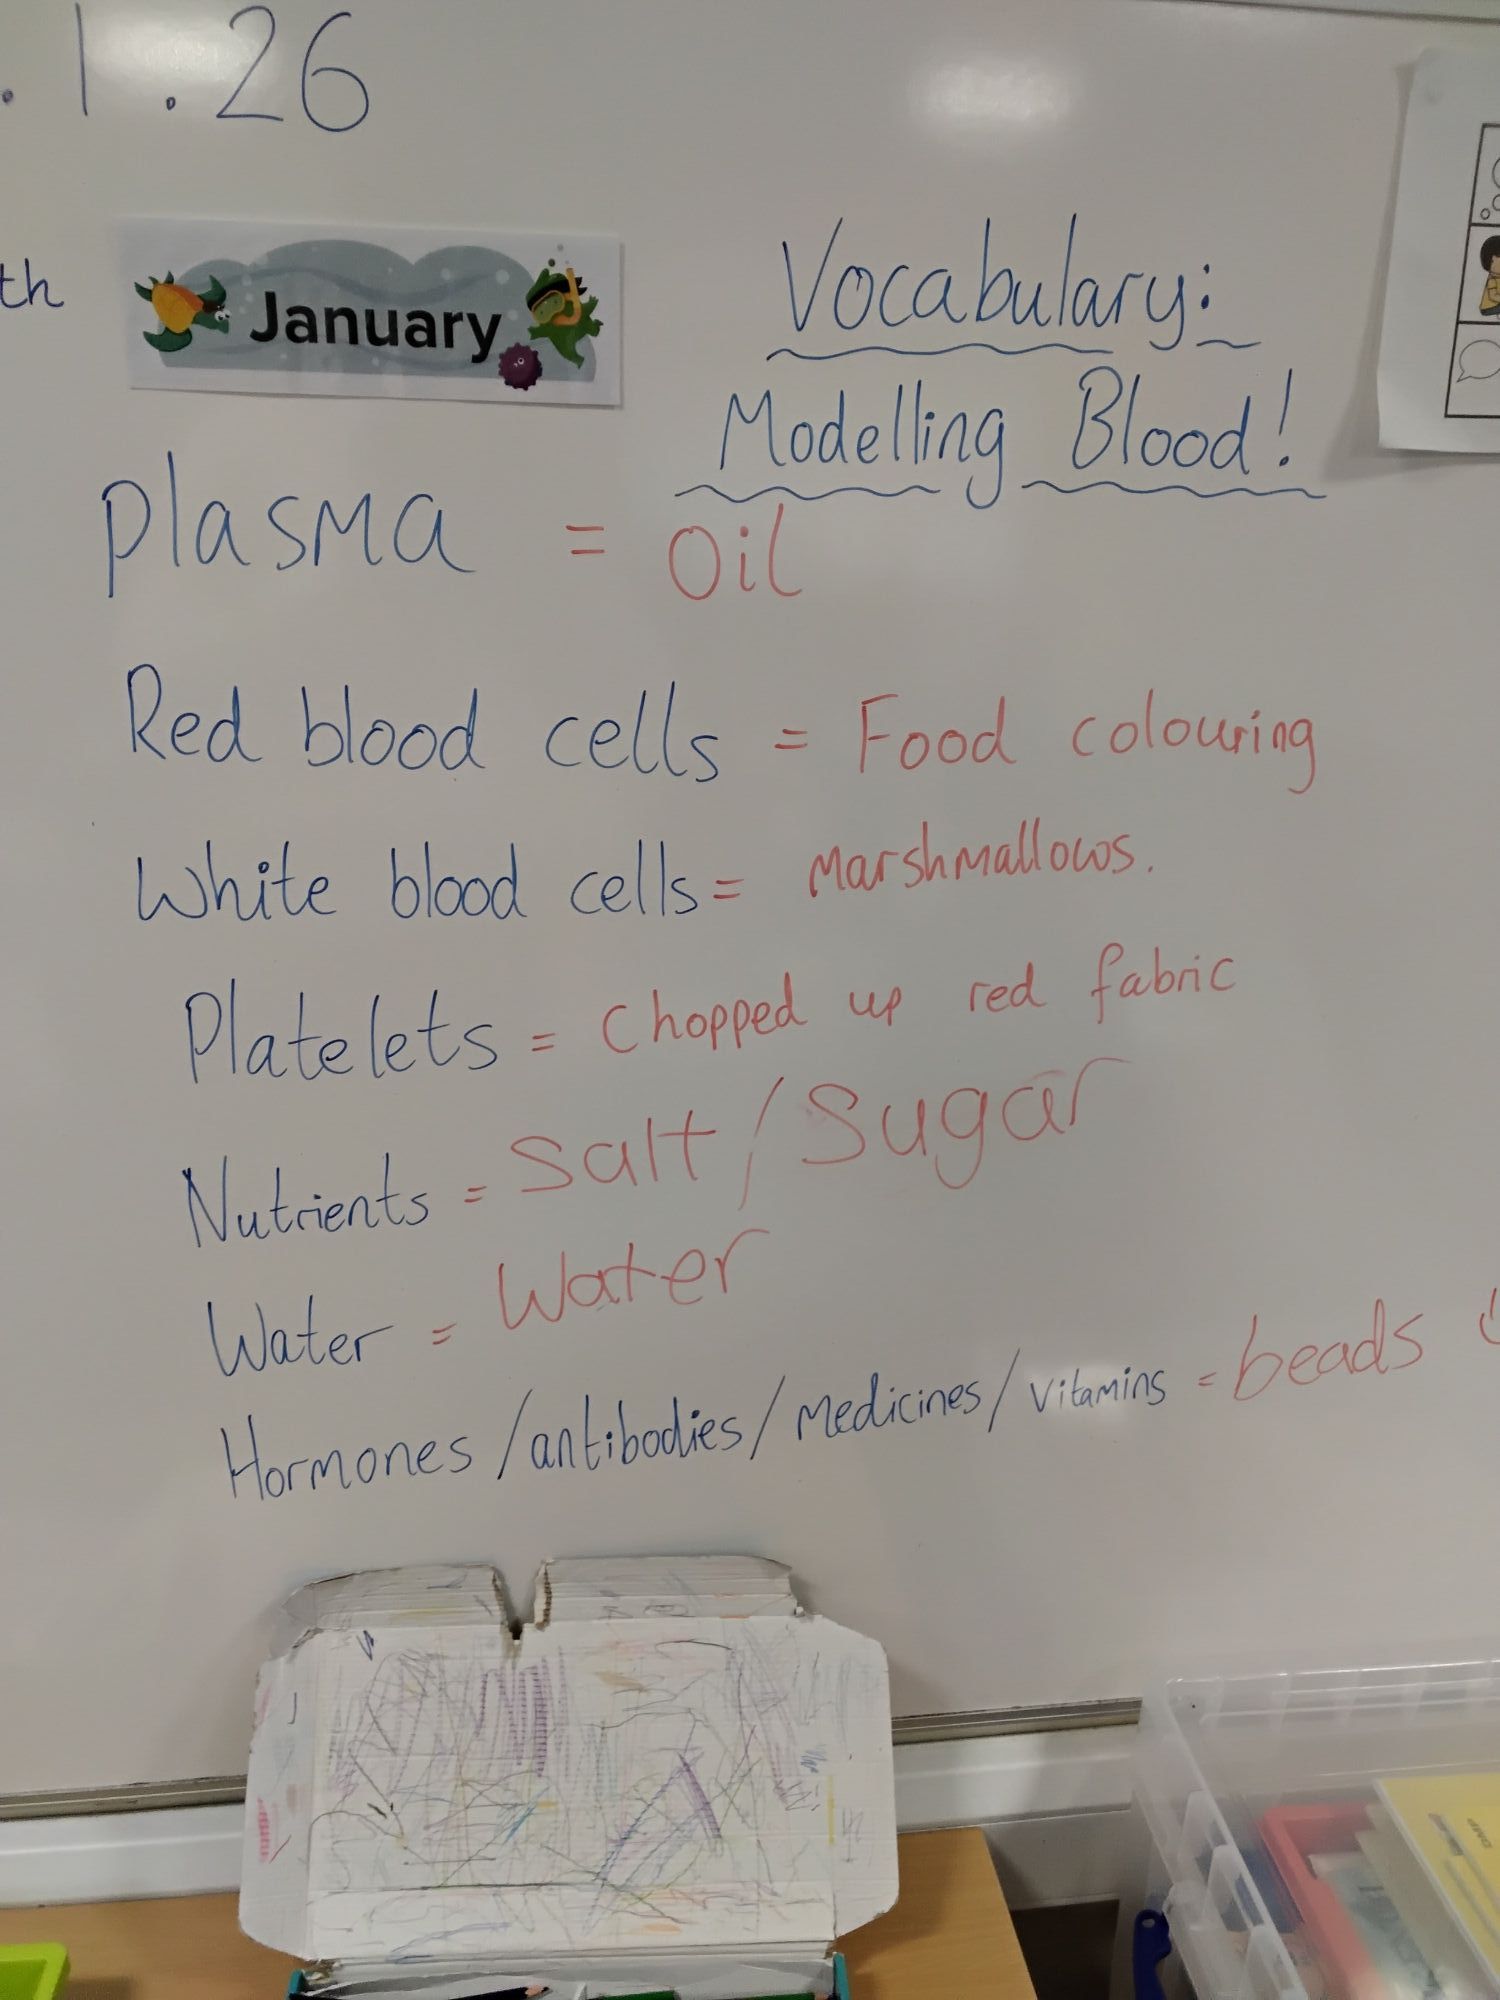 .1.26
th
January
Vocabulary:
Modelling Blood!
Plasma = Oil
Red blood cells = Food colouring
White blood cells = Marshmallows.
Platelets = Chopped up red fabric
Nutrients = Salt/Sugar
Water = Water
Hormones/antibodies/medicines/vitamins = beads